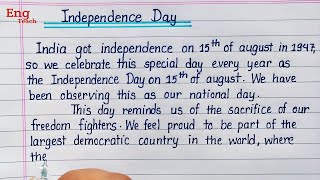 Eng
Teach
Independence Day
India got independence on 15th of august in 1947,
so we celebrate this special day every year as
the Independence Day on 15th of august. We have
been observing this as our national day.
This day reminds us of the sacrifice of our
freedom fighters. We feel proud to be part of the
largest democratic country in the world, where
the